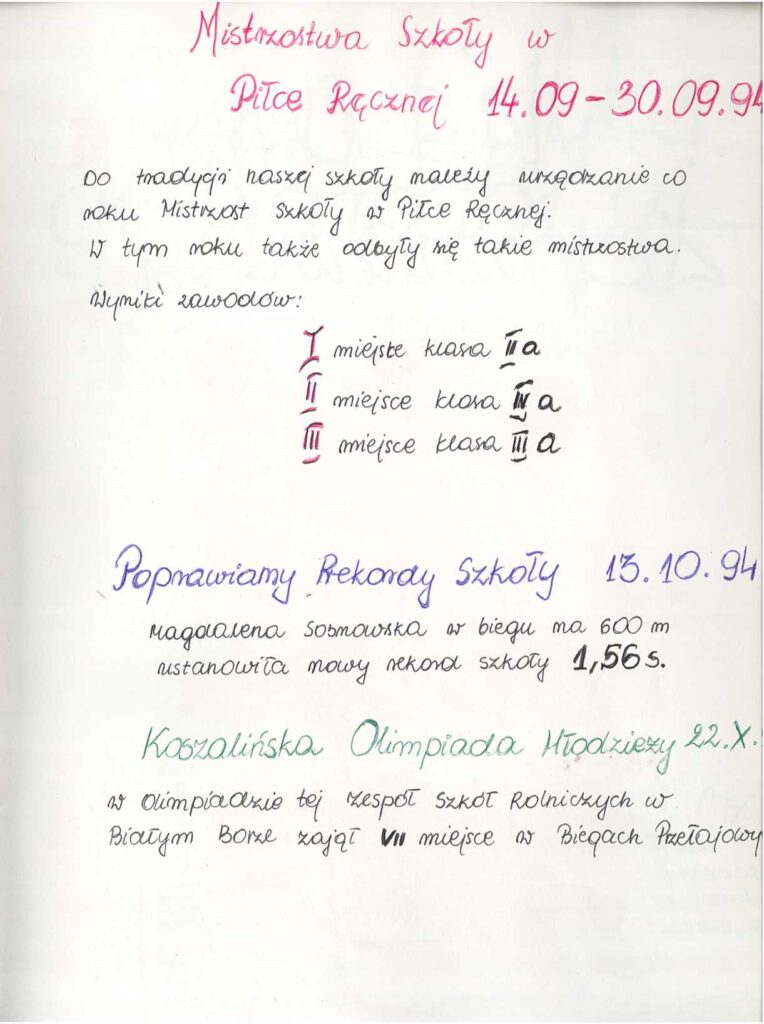 Mistrzostwa Szkoły w
Piłce Ręcznej 14.09-30.09.94
Do tradycji naszej szkoły należy urządzanie co
roku Mistrzost Szkoły w Piłce Ręcznej.
W tym roku także odbyły się takie mistrzostwa.
Wyniki zawodów:
I miejste klasa II a
II miejsce klasa IV a
III miejsce klasa III a
Poprawiamy Rekordy Szkoły 13.10.94
Magdalena Sosnowska w biegu na 600 m
ustanowiła nowy rekord szkoły 1,56 s.
Koszalińska Olimpiada Młodzieży 22.X.
w Olimpiadzie tej Zespół Szkół Rolniczych w
Białym Borze zajął VII miejsce w Biegach Przełajowy